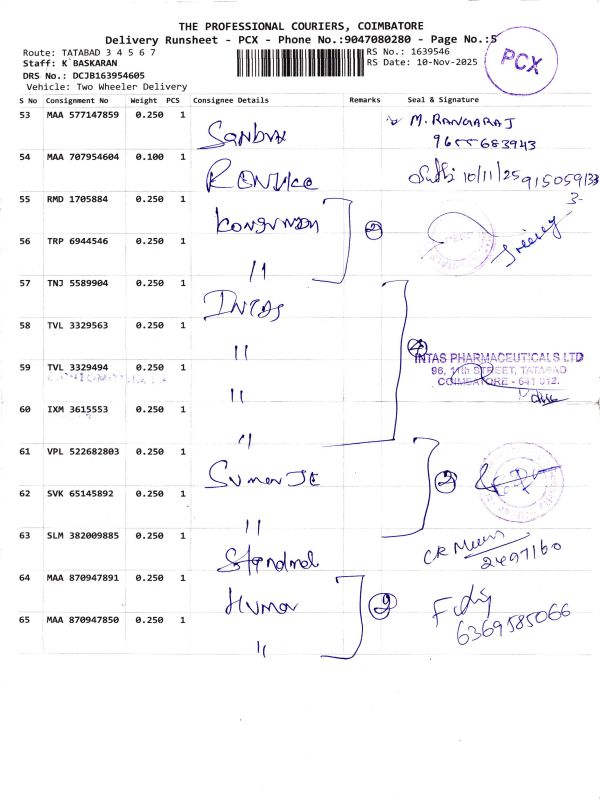 THE PROFESSIONAL COURIERS, COIMBATORE
Delivery Runsheet - PCX - Phone No.:9047080280 - Page No.:5
Route: TATABAD 3 4 5 6 7
RS No.: 1639546
Staff: K BASKARAN
RS Date: 10-Nov-2025
DRS No.: DCJB163954605
Vehicle: Two Wheeler Delivery
PCX
S No Consignment No Weight PCS Consignee Details Remarks Seal & Signature
53 MAA 577147859 0.250 1 M. RANGARAJ
9655683943
54 MAA 707954604 0.100 1 10/11/25
55 RMD 1705884 0.250 1 2
56 TRP 6944546 0.250 1 "
57 TNJ 5589904 0.250 1 INTAS
58 TVL 3329563 0.250 1 " 4
INTAS PHARMACEUTICALS LTD
96, 11th STREET, TATABAD
COIMBATORE - 641 012.
59 TVL 3329494 0.250 1 "
60 IXM 3615553 0.250 1 "
61 VPL 522682803 0.250 1 2
62 SVK 65145892 0.250 1 "
63 SLM 382009885 0.250 1
2497160
64 MAA 870947891 0.250 1 2
6369585066
65 MAA 870947850 0.250 1 "